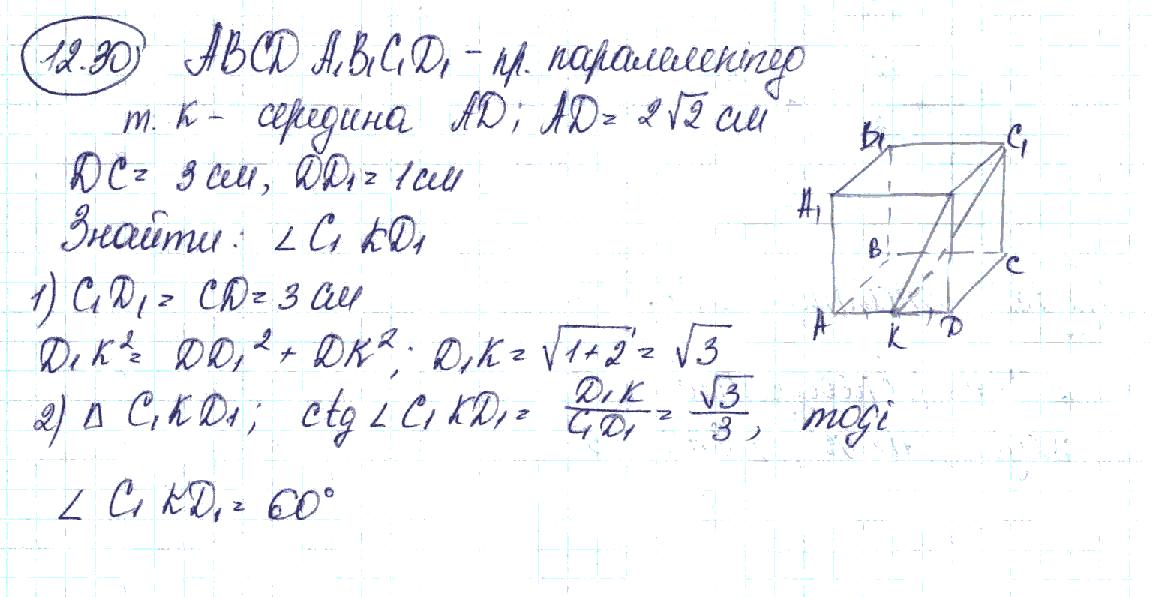 12.30 ABCD A₁B₁C₁D₁ - пр. паралелепіпед
т. K - середина AD; AD = 2√2 см
DC = 3 см, DD₁ = 1 см
Знайти: ∠ C₁ KD₁
1) C₁D₁ = CD = 3 см
D₁K² = DD₁² + DK²; D₁K = √1+2 = √3
2) Δ C₁KD₁; ctg ∠ C₁KD₁ = D₁K/C₁D₁ = √3/3, тоді
∠ C₁ KD₁ = 60°
B₁ C₁
A₁
B C
A K D